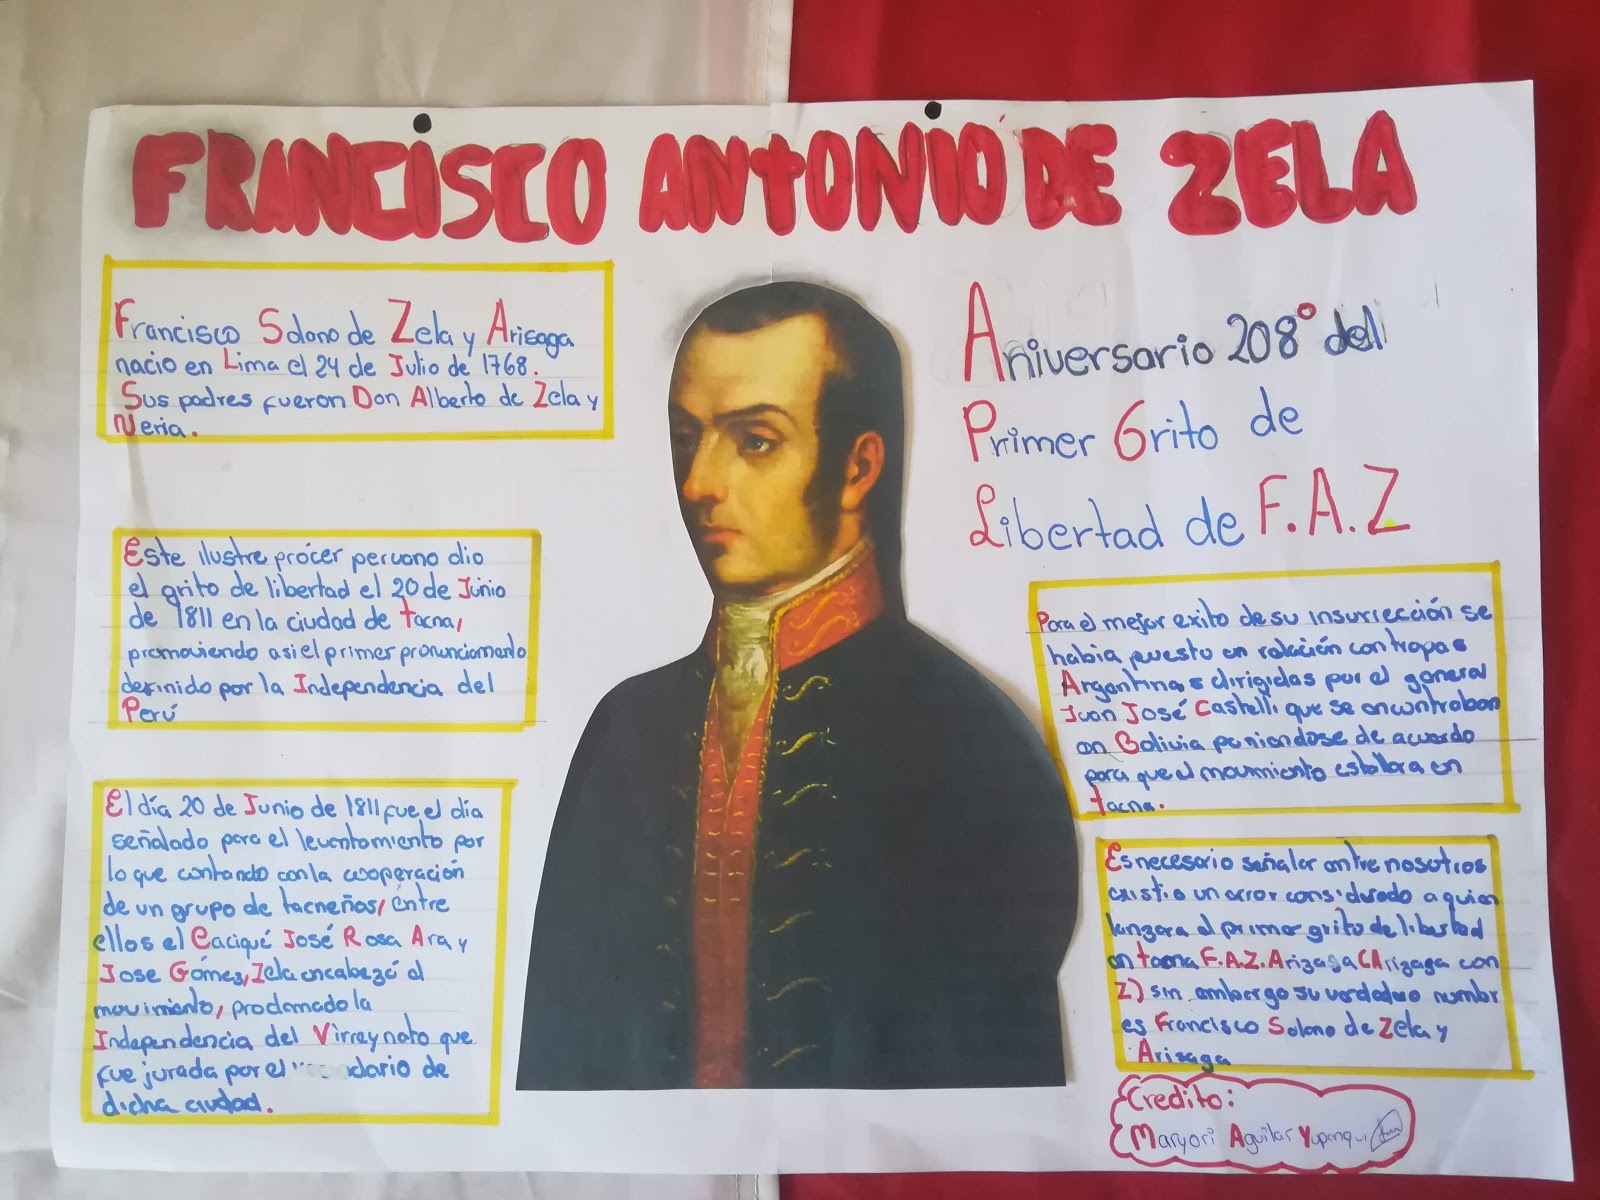 FRANCISCO ANTONIO DE ZELA
Francisco Solano de Zela y Arisaga
nacio en Lima el 24 de Julio de 1768.
Sus padres fueron Don Alberto de Zela y
Neria.
Este ilustre prócer peruano dio
el grito de libertad el 20 de Junio
de 1811 en la ciudad de tacna,
promoviendo asi el primer pronunciamento
definido por la Independencia del
Perú
El día 20 de Junio de 1811 fue el día
señalado para el levantamiento por
lo que contando con la cooperación
de un grupo de tacneños, entre
ellos el Caciqué José Rosa Ara y
Jose Gómez, Zela encabezó el
movimiento, proclamado la
Independencia del Virreynato que
fue jurada por el
dicha ciudad.
Aniversario 208° del
Primer Grito de
Libertad de F.A.Z
Para el mejor exito de su insurrección se
habia puesto en relación con tropas
Argentinas dirigidas por el general
Juan José Castelli que se encontraban
en Bolivia poniendose de acuerdo
para que el movimiento estallara en
tacna.
Es necesario señalar entre nosotros
existio un error considerado a quien
lanzara el primer grito de libertad
en tacna F.A.Z. Arizaga (Arizaga con
Z) sin embargo su verdadero nombre
es Francisco Solano de Zela y
Arisaga
Credito:
Maryori Aguilar Yupanqui